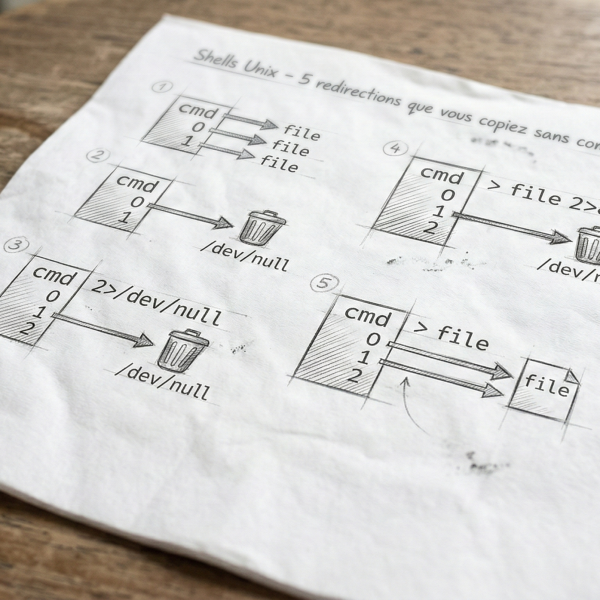 Shells Unix - 5 redirections que vous copiez sans
1
cmd
0
1
file
file
file
2
cmd
0
1
/dev/null
3
cmd
0
1
2
2>/dev/null
/dev/null
4
cmd
0
1
2
> file 2>
5
cmd
0
1
2
> file
file